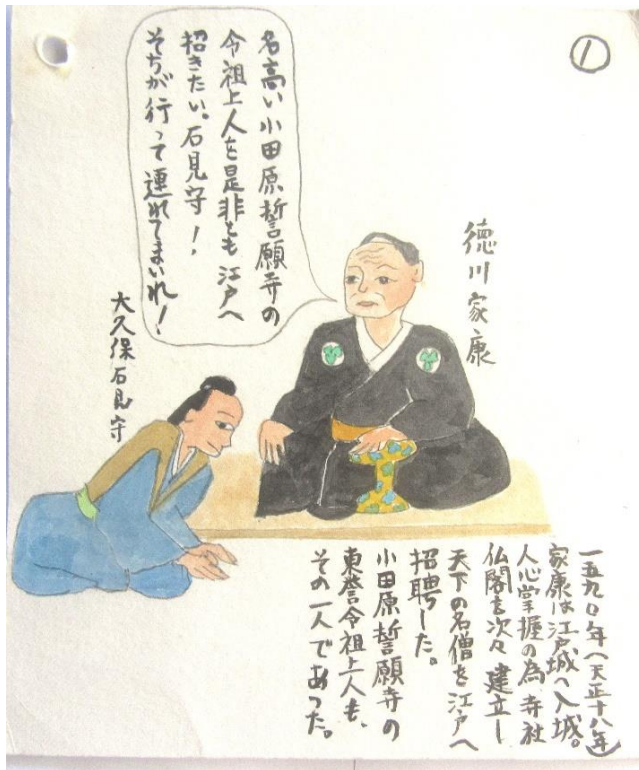 ①
名高い小田原誓願寺の
令祖上人を是非とも江戸へ
招きたい。石見守!
そちが行って連れてまいれ!
徳川家康
大久保石見守
一五九〇年(天正十八年)
家康は江戸城へ入城。
人心掌握の為、寺社
仏閣を次々建立し
天下の名僧を江戸へ
招聘した。
小田原誓願寺の
東誉令祖上人も、
その一人であった。